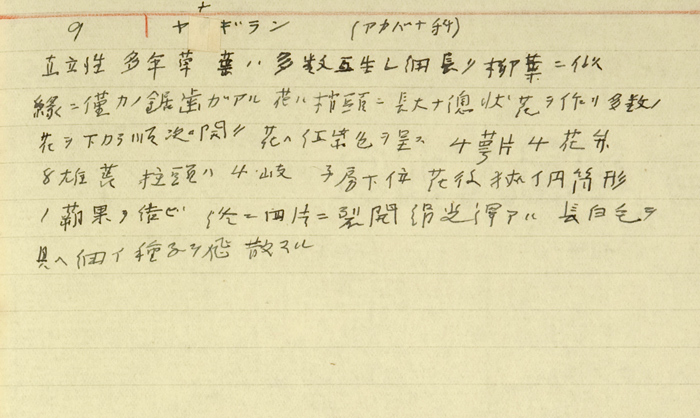 9 ヤナギラン (アカバナ科)
直立性 多年草 葉ハ多数互生シ細長ク柳葉ニ似
縁ニ僅カノ鋸歯ガアル 花ハ梢頭ニ長大ナ總状花ヲ作リ多数ノ
花ヲ下カラ順次ニ開ク 花ハ紅紫色ヲ呈ス 4萼片4花弁
8雄蕊 柱頭ハ4岐 子房下位 花後 狭イ円筒形
ノ蒴果ヲ結ビ 終ニ四片ニ裂開 絹光澤アル 長白毛ヲ
具ヘ細イ種子ヲ飛散スル